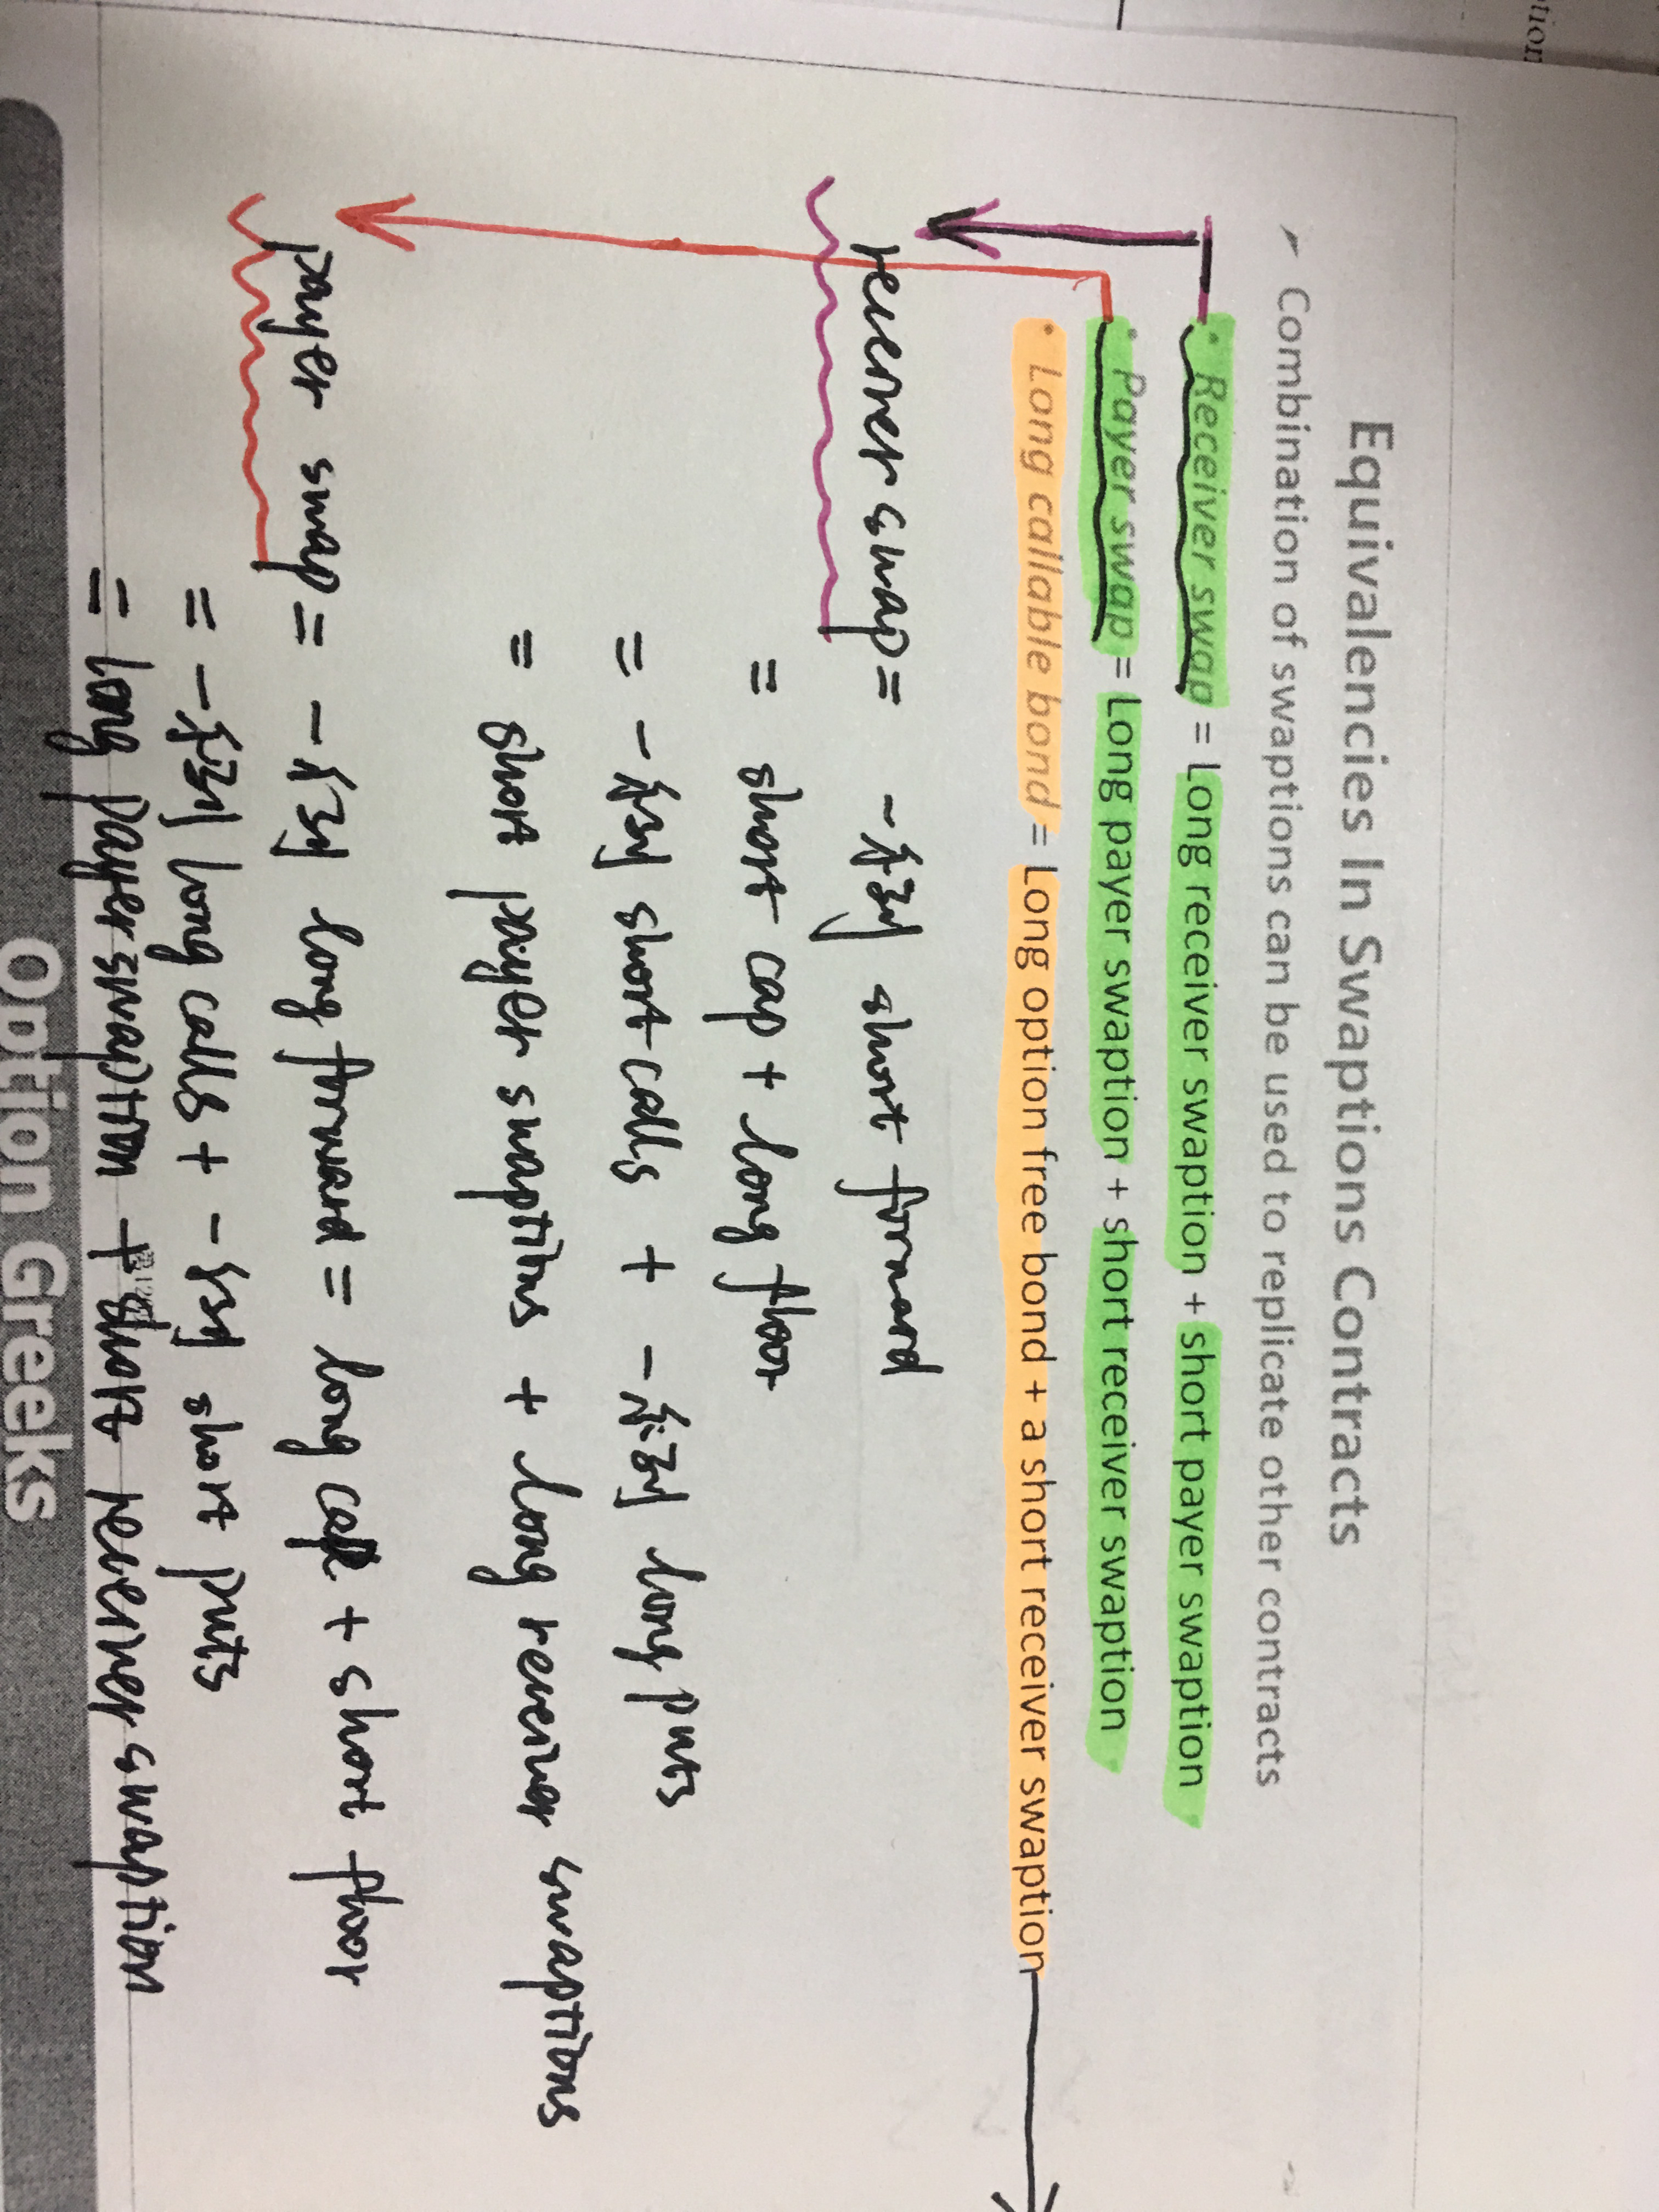 tion
Equivalencies In Swaptions Contracts
Combination of swaptions can be used to replicate other contracts
• Receiver swap = Long receiver swaption + short payer swaption
• Payer swap = Long payer swaption + short receiver swaption
• Long callable bond = Long option free bond + a short receiver swaption
receiver swap = 一系列 short forward
= short cap + long floor
= 一系列 short calls + 一系列 long puts
= short payer swaptions + long receiver swaptions
payer swap = 一系列 long forward = long cap + short floor
= 一系列 long calls + 一系列 short puts
= long payer swaption + short receiver swaption
Option Greeks